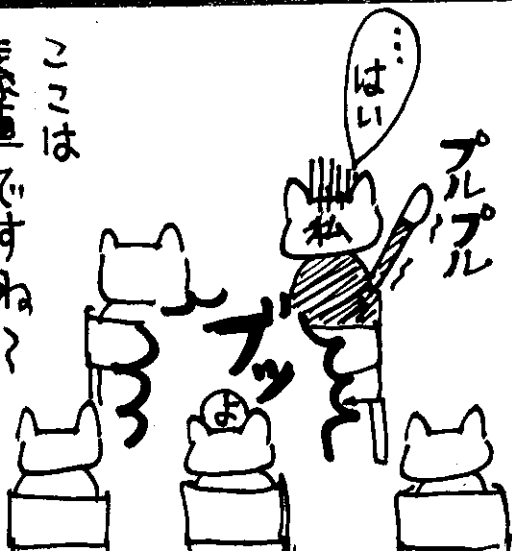 …はい
プルプル
私
ブッ
よ
ここは
ですね〜